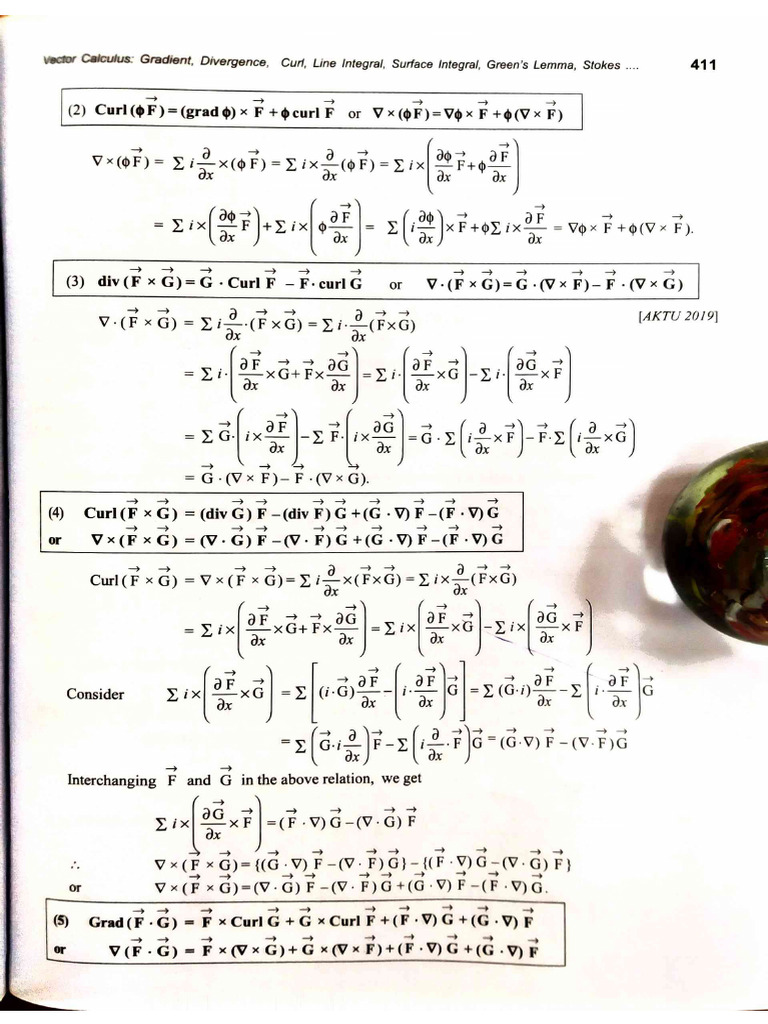 Vector Calculus: Gradient, Divergence, Curl, Line Integral, Surface Integral, Green's Lemma, Stokes .... 411
(2) Curl (ϕ F⃗) = (grad ϕ) × F⃗ + ϕ curl F⃗ or ∇ × (ϕF⃗) = ∇ϕ × F⃗ + ϕ (∇ × F⃗)
∇ × (ϕ F⃗) = Σ i ∂/∂x × (ϕ F⃗) = Σ i × ∂/∂x (ϕ F⃗) = Σ i × (∂ϕ/∂x F⃗ + ϕ ∂F⃗/∂x)
= Σ i × (∂ϕ/∂x F⃗) + Σ i × (ϕ ∂F⃗/∂x) = Σ (i ∂ϕ/∂x) × F⃗ + ϕΣ i × ∂F⃗/∂x = ∇ϕ × F⃗ + ϕ (∇ × F⃗).
(3) div (F⃗ × G⃗) = G⃗ · Curl F⃗ – F⃗ · curl G⃗ or ∇ · (F⃗ × G⃗) = G⃗ · (∇ × F⃗) – F⃗ · (∇ × G⃗)
[AKTU 2019]
∇ · (F⃗ × G⃗) = Σ i ∂/∂x · (F⃗ × G⃗) = Σ i · ∂/∂x (F⃗ × G⃗)
= Σ i · (∂F⃗/∂x × G⃗ + F⃗ × ∂G⃗/∂x) = Σ i · (∂F⃗/∂x × G⃗) – Σ i · (∂G⃗/∂x × F⃗)
= Σ G⃗ · (i × ∂F⃗/∂x) – Σ F⃗ · (i × ∂G⃗/∂x) = G⃗ · Σ (i ∂/∂x × F⃗) – F⃗ · Σ (i ∂/∂x × G⃗)
= G⃗ · (∇ × F⃗) – F⃗ · (∇ × G⃗).
(4) Curl (F⃗ × G⃗) = (div G⃗) F⃗ – (div F⃗) G⃗ + (G⃗ · ∇) F⃗ – (F⃗ · ∇) G⃗
or ∇ × (F⃗ × G⃗) = (∇ · G⃗) F⃗ – (∇ · F⃗) G⃗ + (G⃗ · ∇) F⃗ – (F⃗ · ∇) G⃗
Curl (F⃗ × G⃗) = ∇ × (F⃗ × G⃗) = Σ i ∂/∂x × (F⃗ × G⃗) = Σ i × ∂/∂x (F⃗ × G⃗)
= Σ i × (∂F⃗/∂x × G⃗ + F⃗ × ∂G⃗/∂x) = Σ i × (∂F⃗/∂x × G⃗) – Σ i × (∂G⃗/∂x × F⃗)
Consider Σ i × (∂F⃗/∂x × G⃗) = Σ [(i · G⃗) ∂F⃗/∂x – (i · ∂F⃗/∂x) G⃗] = Σ (G⃗ · i) ∂F⃗/∂x – Σ (i · ∂F⃗/∂x) G⃗
= Σ (G⃗ · i ∂/∂x) F⃗ – Σ (i ∂/∂x · F⃗) G⃗ = (G⃗ · ∇) F⃗ – (∇ · F⃗) G⃗
Interchanging F⃗ and G⃗ in the above relation, we get
Σ i × (∂G⃗/∂x × F⃗) = (F⃗ · ∇) G⃗ – (∇ · G⃗) F⃗
∴ ∇ × (F⃗ × G⃗) = {(G⃗ · ∇) F⃗ – (∇ · F⃗) G⃗} – {(F⃗ · ∇) G⃗ – (∇ · G⃗) F⃗}
or ∇ × (F⃗ × G⃗) = (∇ · G⃗) F⃗ – (∇ · F⃗) G⃗ + (G⃗ · ∇) F⃗ – (F⃗ · ∇) G⃗.
(5) Grad (F⃗ · G⃗) = F⃗ × Curl G⃗ + G⃗ × Curl F⃗ + (F⃗ · ∇) G⃗ + (G⃗ · ∇) F⃗
or ∇ (F⃗ · G⃗) = F⃗ × (∇ × G⃗) + G⃗ × (∇ × F⃗) + (F⃗ · ∇) G⃗ + (G⃗ · ∇) F⃗